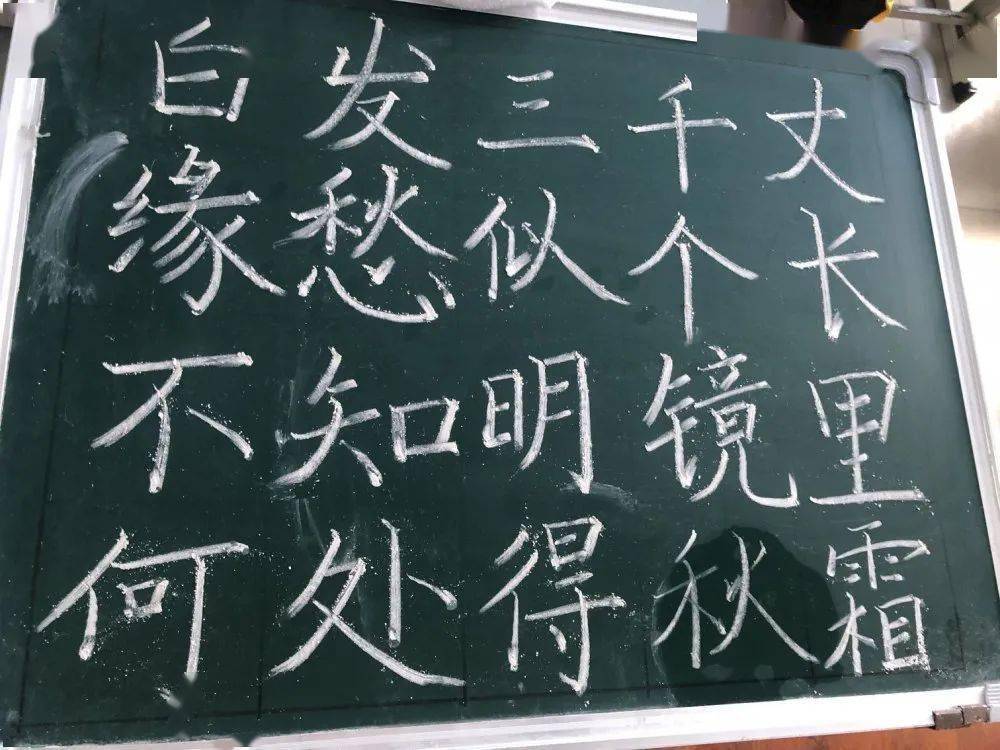 白发三千丈
缘愁似个长
不知明镜里
何处得秋霜